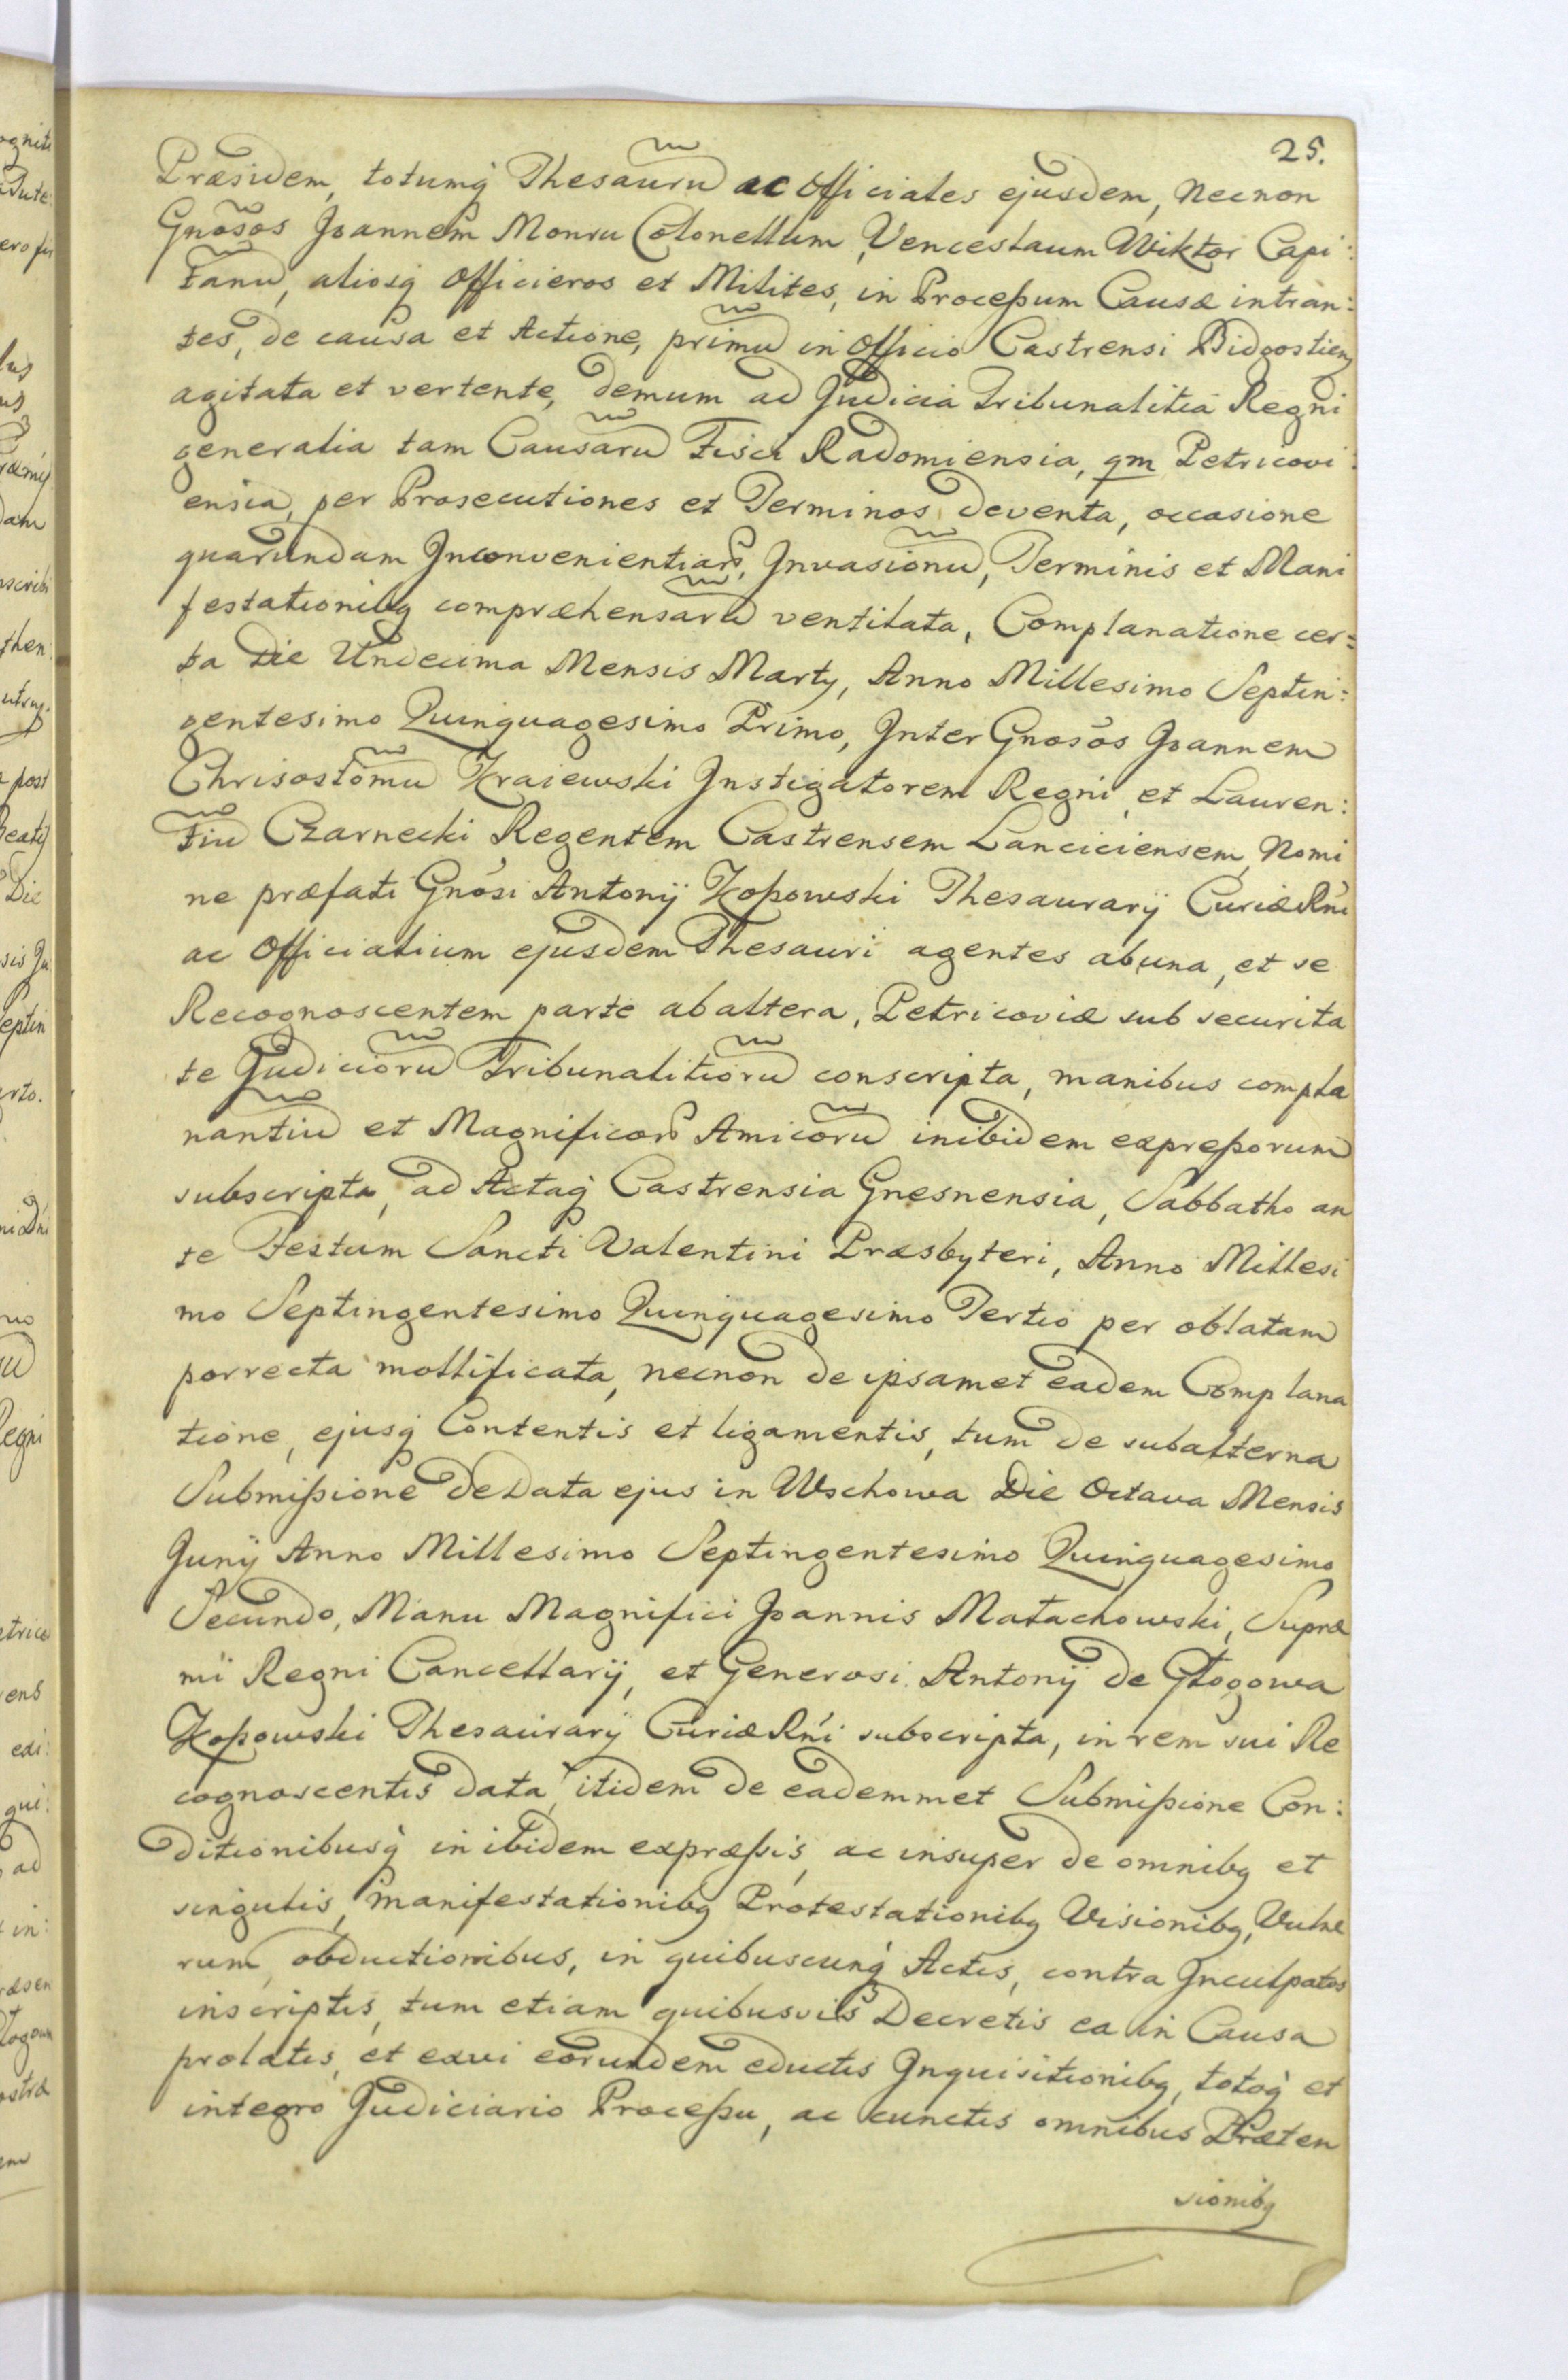 25.
Præsidem, totumq́ Thesauru̅ ac officiales ejusdem, Necnon
Gnosos Joannem Monru Colonellum, Venceslaum Wiktor Capi:
tanu̅, aliosq́ officieros et Milites, in Proceßum Causæ intran:
tes, de causa et Actione, primu̅ in officio Castrensi Bidgostien̅
agitata et vertente, demum ad Judicia Tribunalitia Regni
generalia tam Causaru̅ Fisci Radomiensia, qm Petricovi
ensia, per Prosecutiones et Terminos deventa, occasione
quarundam Inconvenientiar̅, Invasionu̅, Terminis et Mani
festationibꝫ compræhensaru̅ ventilata, Complanatione cer=
ta Die Undecima Mensis Martij, Anno Millesimo Septin:
gentesimo Quinquagesimo Primo, Inter Gnosos Joannem
Chrisostomu̅ Kraiewski Instigatorem Regni, et Lauren:
tiu̅ Czarnecki Regentem Castrensem Lanciciensem, Nomi
ne præfati Gnosi Antonÿ Koßowski Thesaurarÿ Curiæ Rńi
ac officialium ejusdem Thesauri agentes ab una, et se
Recognoscentem parte ab altera, Petricoviæ sub securita
te Judicioru̅ Tribunalitioru̅ conscripta, manibus compla
nantiu̅ et Magnificor̅ Amicoru̅ inibidem expreßorum
subscripta, ad Actaq́ Castrensia Gnesnensia, Sabbatho an
te Festum Sancti Valentini Præsbyteri, Anno Millesi
mo Septingentesimo Quinquagesimo Tertio per oblatam
porrecta mollificata, necnon de ipsamet eadem Complana
tione, ejusq́ Contentis et ligamentis, tum de subalterna
Submißione de Data ejus in Wschowa Die Octava Mensis
Junÿ Anno Millesimo Septingentesimo Quinquagesimo
Secundo, Manu Magnifici Joannis Małachowski, Supræ
mi Regni Cancellarÿ, et Generosi Antonÿ de Głogowa
Koßowski Thesaurarÿ Curiæ Rńi subscripta, in rem sui Re
cognoscentis data, itidem de eademmet Submißione Con:
ditionibusq́ in ibidem expræßis, ac insuper de omnibꝫ et
singulis, manifestationibꝫ Protestationibꝫ Visionibꝫ, Vulne
rum, obductionibus, in quibuscunq́ Actis, contra Inculpatos
inscriptis, tum etiam quibusvis Decretis ea in Causa
prolatis, et exvi eorundem eductis Inquisitionibꝫ, totoq́ et
integro Judiciario Proceßu, ac cunctis omnibus Præten
sionibꝫ